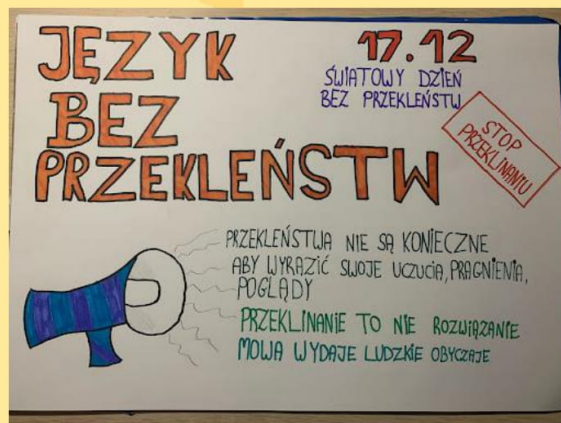 JĘZYK
BEZ
PRZEKLEŃSTW
17.12
ŚWIATOWY DZIEŃ
BEZ PRZEKLEŃSTW
STOP
PRZEKLINANIU
PRZEKLEŃSTWA NIE SĄ KONIECZNE
ABY WYRAZIĆ SWOJE UCZUCIA, PRAGNIENIA,
POGLĄDY
PRZEKLINANIE TO NIE ROZWIĄZANIE
MOWA WYDAJE LUDZKIE OBYCZAJE